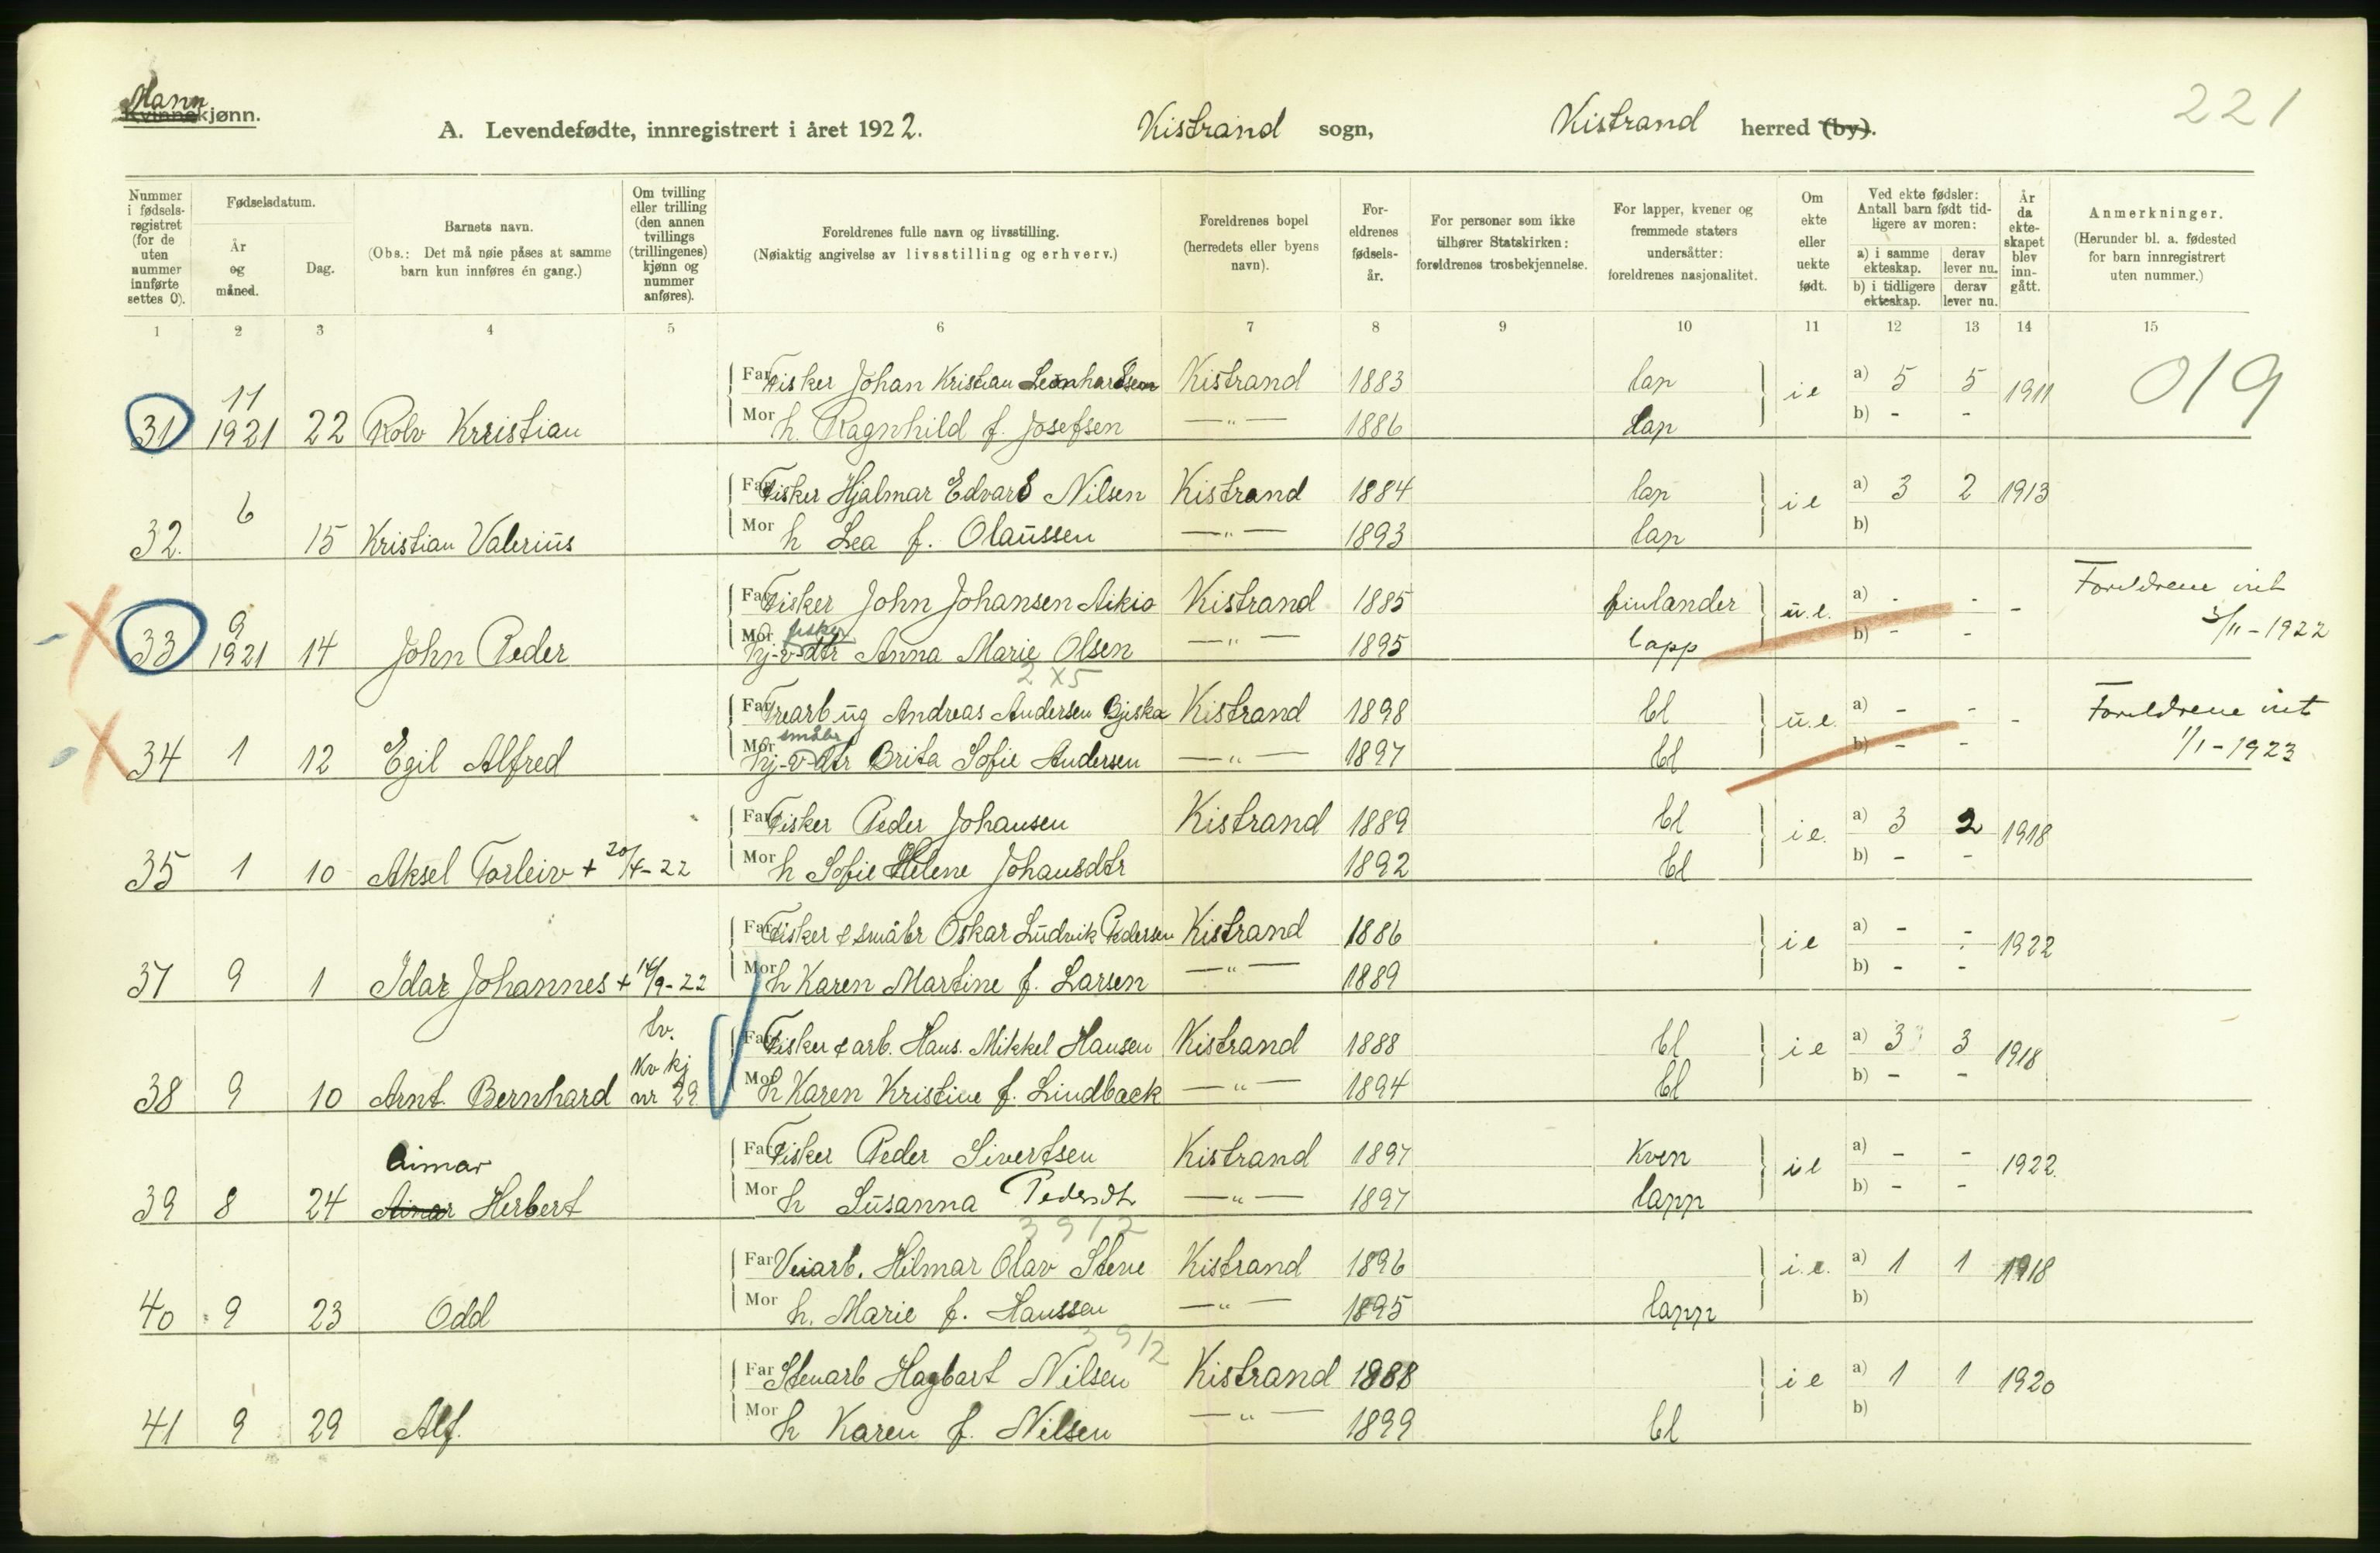 Mann
Kvinnekjønn.
A. Levendefødte, innregistrert i året 1922. Kistrand sogn, Kistrand herred (by).
221
Nummer i fødselsregistret (for de uten nummer innførte settes 0).
Fødselsdatum.
År og måned.
Dag.
Barnets navn.
(Obs.: Det må nøie påses at samme barn kun innføres én gang.)
Om tvilling eller trilling (den annen tvillings (trillingenes) kjønn og nummer anføres).
Foreldrenes fulle navn og livsstilling.
(Nøiaktig angivelse av livsstilling og erhverv.)
Foreldrenes bopel (herredets eller byens navn).
Foreldrenes fødselsår.
For personer som ikke tilhører Statskirken: foreldrenes trosbekjennelse.
For lapper, kvener og fremmede staters undersåtter: foreldrenes nasjonalitet.
Om ekte eller uekte født.
Ved ekte fødsler: Antall barn født tidligere av moren:
a) i samme ekteskap. derav lever nu.
b) i tidligere ekteskap. derav lever nu.
År da ekteskapet blev inngått.
Anmerkninger.
(Herunder bl. a. fødested for barn innregistrert uten nummer.)
1 2 3 4 5 6 7 8 9 10 11 12 13 14 15
Far Fisker Johan Kristian Leonhardsen Kistrand 1883 lap i e a) 5 5 1911 019
31 11 1921 22 Rolv Kristian Mor h. Ragnhild f. Josefsen —„— 1886 lap b) - -
Far Fisker Hjalmar Edvard Nilsen Kistrand 1884 lap i e a) 3 2 1913
32. 6 15 Kristian Valerius Mor h Lea f. Olaussen —„— 1893 lap b)
Far Fisker John Johansen Aikio Kistrand 1885 finlander u.e. a) - - - Foreldrene viet
33 9 1921 14 John Peder Mor fisker hj-v-dtr Anna Marie Olsen —„— 1895 lapp b) - - 5/11-1922
2 x 5
Far Trearb ug Andreas Andersen Bjeska Kistrand 1898 bl u.e. a) - - - Foreldrene viet
34 1 12 Egil Alfred Mor småbr hj-v-dtr Brita Sofie Andersen —„— 1897 bl b) - - 1/1-1923
Far Fisker Peder Johansen Kistrand 1889 bl i e. a) 3 2 1918
35 1 10 Aksel Torleiv + 20/4-22 Mor h Sofie Helene Johansdtr 1892 bl b) - -
Far Fisker & småbr Oskar Ludvik Pedersen Kistrand 1886 i e a) - - 1922
37 9 1 Idar Johannes + 14/9-22 Mor h Karen Martine f. Larsen —„— 1889 b) - -
tv. Far Fisker & arb. Hans. Mikkel Hansen Kistrand 1888 bl i e a) 3 3 1918
38 9 10 Arnt. Bernhard kv kj nr 29 Mor h Karen Kristine f. Lindback —„— 1894 bl b) - -
Aimar Far Fisker Peder Sivertsen Kistrand 1897 kven i e a) - - 1922.
39 8 24 Herbert Mor h Susanna Pedersdtr —„— 1897 lapp b) - -
3912
Far Veiarb. Hilmar Olav Stene Kistrand 1896 i.e. a) 1 1 1918
40 9 23 Odd Mor h. Marie f. Hanssen —„— 1895 lapp b)
3912
Far Stenarb Hagbart Nilsen Kistrand 1888 i e a) 1 1 1920
41 9 29 Alf. Mor h Karen f. Nilsen —„— 1899 bl b)